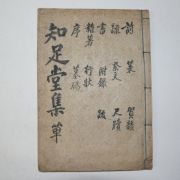 詩 策 賀牋
疏 祭文 尺牘
書 附錄 跋
雜著 行狀
序 墓碣
知足堂集 單